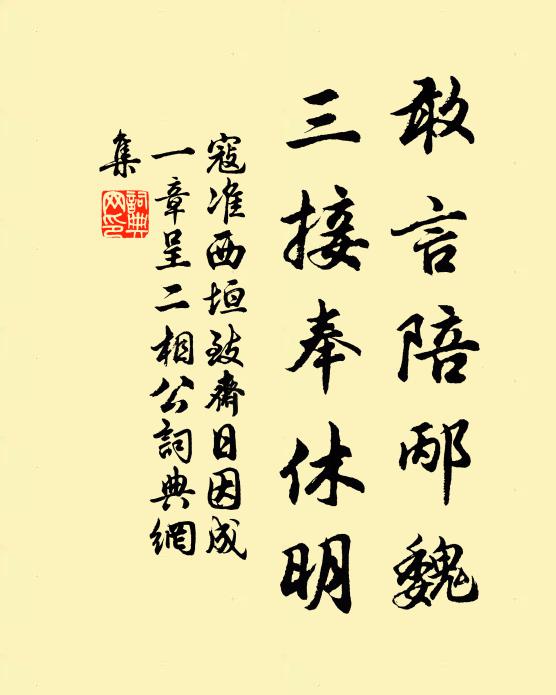 敢言陪邴魏
三接奉休明
寇准西垣致斋日因成
一章呈二相公詞典網
集
詞典
网印